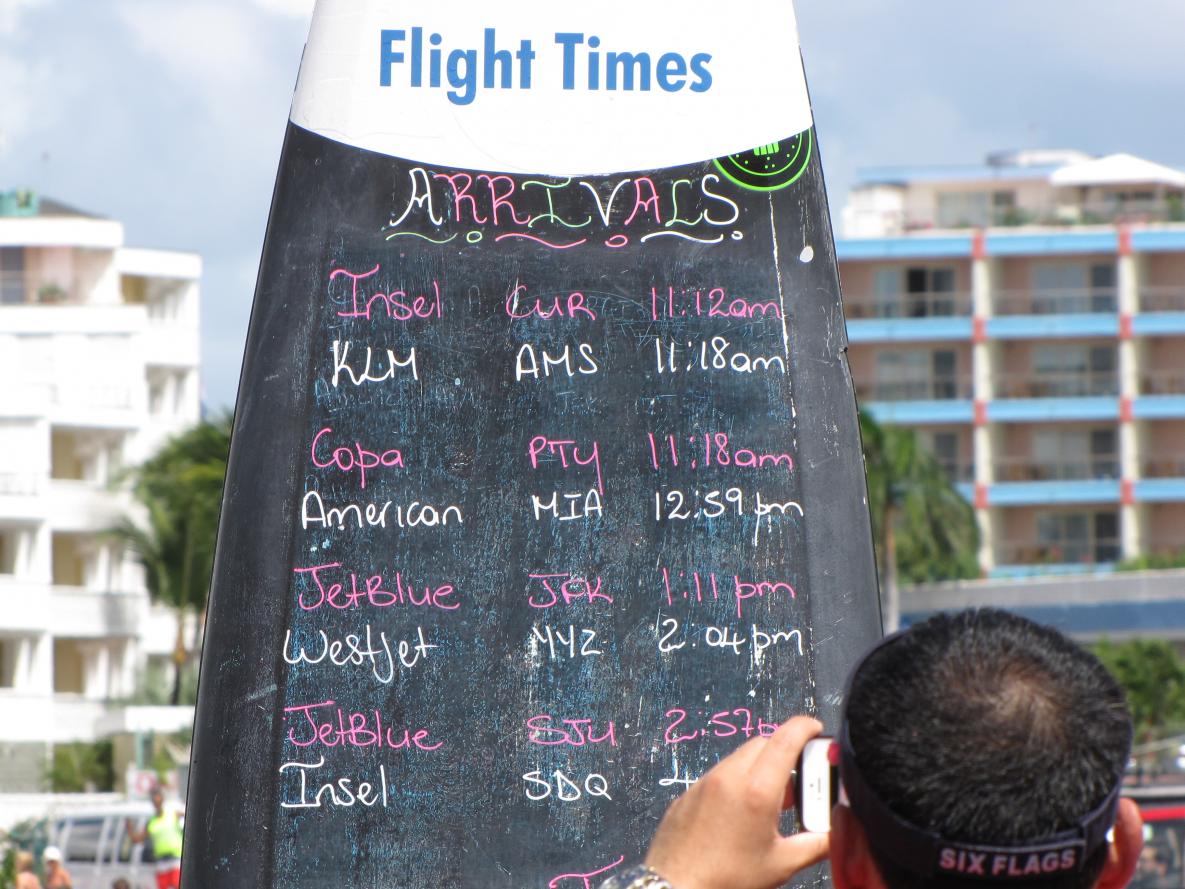 Flight Times
ARRIVALS
Insel CUR 11:12am
KLM AMS 11:18am
Copa PTY 11:18am
American MIA 12:59pm
JetBlue JFK 1:11 pm
Westjet YYZ 2:04pm
JetBlue SJU 2:57p
Insel SDQ 4:
SIX FLAGS